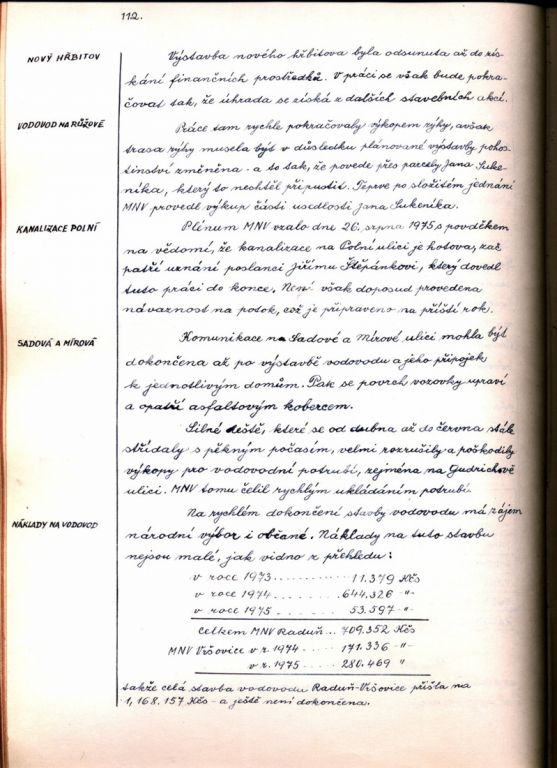 112.
NOVÝ HŘBITOV
Výstavba nového hřbitova byla odsunuta až do zís-
kání finančních prostředků. V práci se však bude pokra-
čovat tak, že úhrada se získá z dalších stavebních akcí.
VODOVOD NA RŮŽOVĚ
Práce tam rychle pokračovaly výkopem rýhy, avšak
trasa rýhy musela být v důsledku plánované výstavby pohos-
tinství změněna - a to tak, že povede přes parcely Jana Suke-
níka, který to nechtěl připustit. Teprve po složitém jednání
MNV provedl výkup části usedlosti Jana Sukeníka.
KANALIZACE POLNÍ
Plénum MNV vzalo dne 26. srpna 1975 s povděkem
na vědomí, že kanalizace na Polní ulici je hotova, zač
patří uznání poslanci Jiřímu Štěpánkovi, který dovedl
tuto práci do konce. Není však doposud provedena
návaznost na potok, což je připraveno na příští rok.
SADOVÁ A MÍROVÁ
Komunikace na Sadové a Mírové ulici mohla být
dokončena až po výstavbě vodovodu a jeho přípojek
k jednotlivým domům. Pak se povrch vozovky upraví
a opatří asfaltovým kobercem.
Silné deště, které se od dubna až do června stále
střídaly s pěkným počasím, velmi rozrušily a poškodily
výkopy pro vodovodní potrubí, zejména na Gudrichově
ulici. MNV tomu čelil rychlým ukládáním potrubí.
NÁKLADY NA VODOVOD
Na rychlém dokončení stavby vodovodu má zájem
národní výbor i občané. Náklady na tuto stavbu
nejsou malé, jak vidno z přehledu:
v roce 1973 ............ 11.379 Kčs
v roce 1974 ......... 644.326 -"-
v roce 1975 ........ 53.597 -"-
Celkem MNV Raduň ... 709.352 Kčs
MNV Vršovice v r. 1974 ..... 171.336 -"-
v r. 1975 ..... 280.469 "
takže celá stavba vodovodu Raduň-Vršovice přišla na
1,168.157 Kčs - a ještě není dokončena.